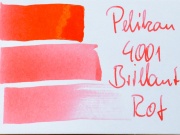 Pelikan
4001
Brillant
Rot